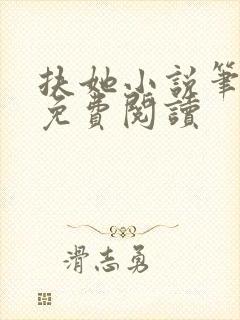 扶她小說筆
免費閱讀
滑志勇